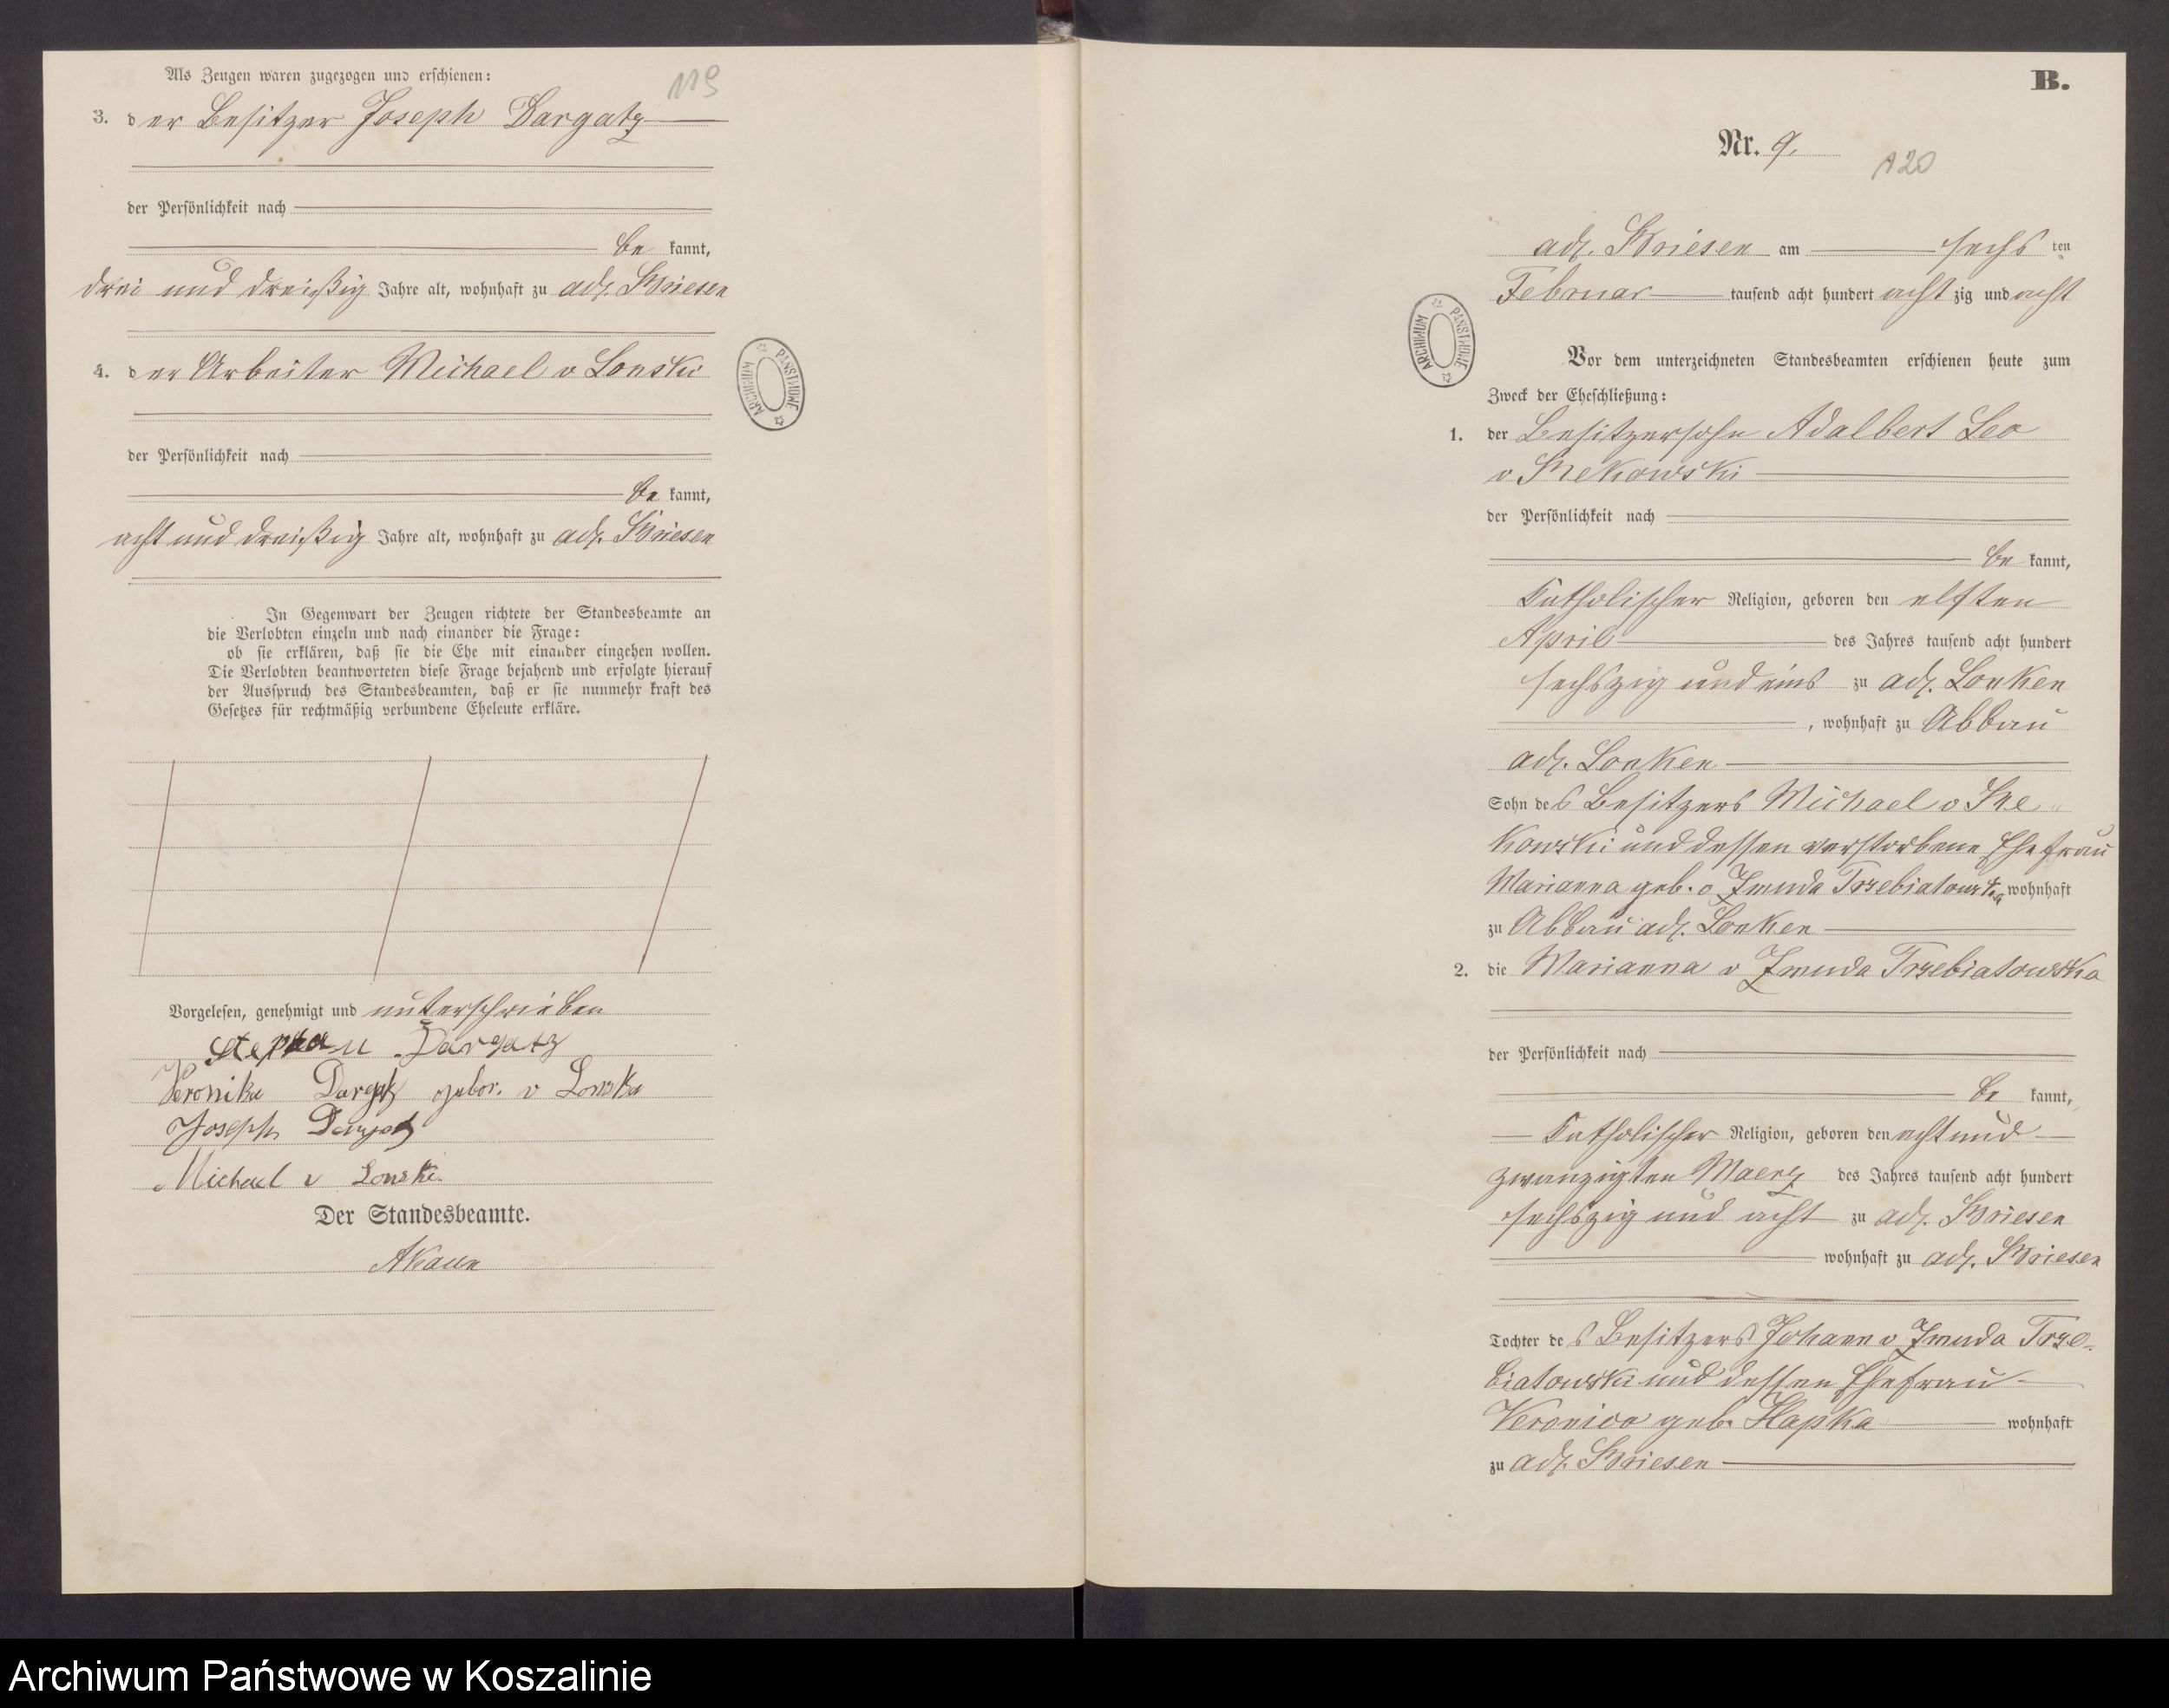 Als Zeugen waren zugezogen und erschienen:
119
3. der Besitzer Joseph Dargatz
der Persönlichkeit nach
bekannt,
drei und dreißig Jahre alt, wohnhaft zu adl. Briesen
4. der Arbeiter Michael v Lonski
der Persönlichkeit nach
bekannt,
acht und dreißig Jahre alt, wohnhaft zu adl. Briesen
In Gegenwart der Zeugen richtete der Standesbeamte an
die Verlobten einzeln und nach einander die Frage:
ob sie erklären, daß sie die Ehe mit einander eingehen wollen.
Die Verlobten beantworteten diese Frage bejahend und erfolgte hierauf
der Ausspruch des Standesbeamten, daß er sie nunmehr kraft des
Gesetzes für rechtmäßig verbundene Eheleute erkläre.
Vorgelesen, genehmigt und unterschrieben
Stephan Dargatz
Veronika Dargatz gebor. v Lonska
Joseph Dargatz
Michael v Lonski.
Der Standesbeamte.
ARCHIWUM PAŃSTWOWE
B.
Nr. 9.
120
adl. Briesen am sechsten
Februar tausend acht hundert achtzig und acht
ARCHIWUM PAŃSTWOWE
Vor dem unterzeichneten Standesbeamten erschienen heute zum
Zweck der Eheschließung:
1. der Besitzersohn Adalbert Leo
v Rekowski
der Persönlichkeit nach
bekannt,
Katholischer Religion, geboren den elften
April des Jahres tausend acht hundert
sechszig und eins zu adl. Lonken
, wohnhaft zu Abbau
adl. Lonken
Sohn des Besitzers Michael v Re
kowski und dessen verstorbene Ehefrau
Marianna geb. v Zmuda Trzebiatowska wohnhaft
zu Abbau adl. Lonken
2. die Marianna v Zmuda Trzebiatowska
der Persönlichkeit nach
bekannt,
Katholischer Religion, geboren den acht und
zwanzigsten Maerz des Jahres tausend acht hundert
sechszig und acht zu adl. Briesen
wohnhaft zu adl. Briesen
Tochter des Besitzers Johann v Zmuda Trze-
biatowski und dessen Ehefrau
Veronica geb. Hapka wohnhaft
zu adl. Briesen
Archiwum Państwowe w Koszalinie